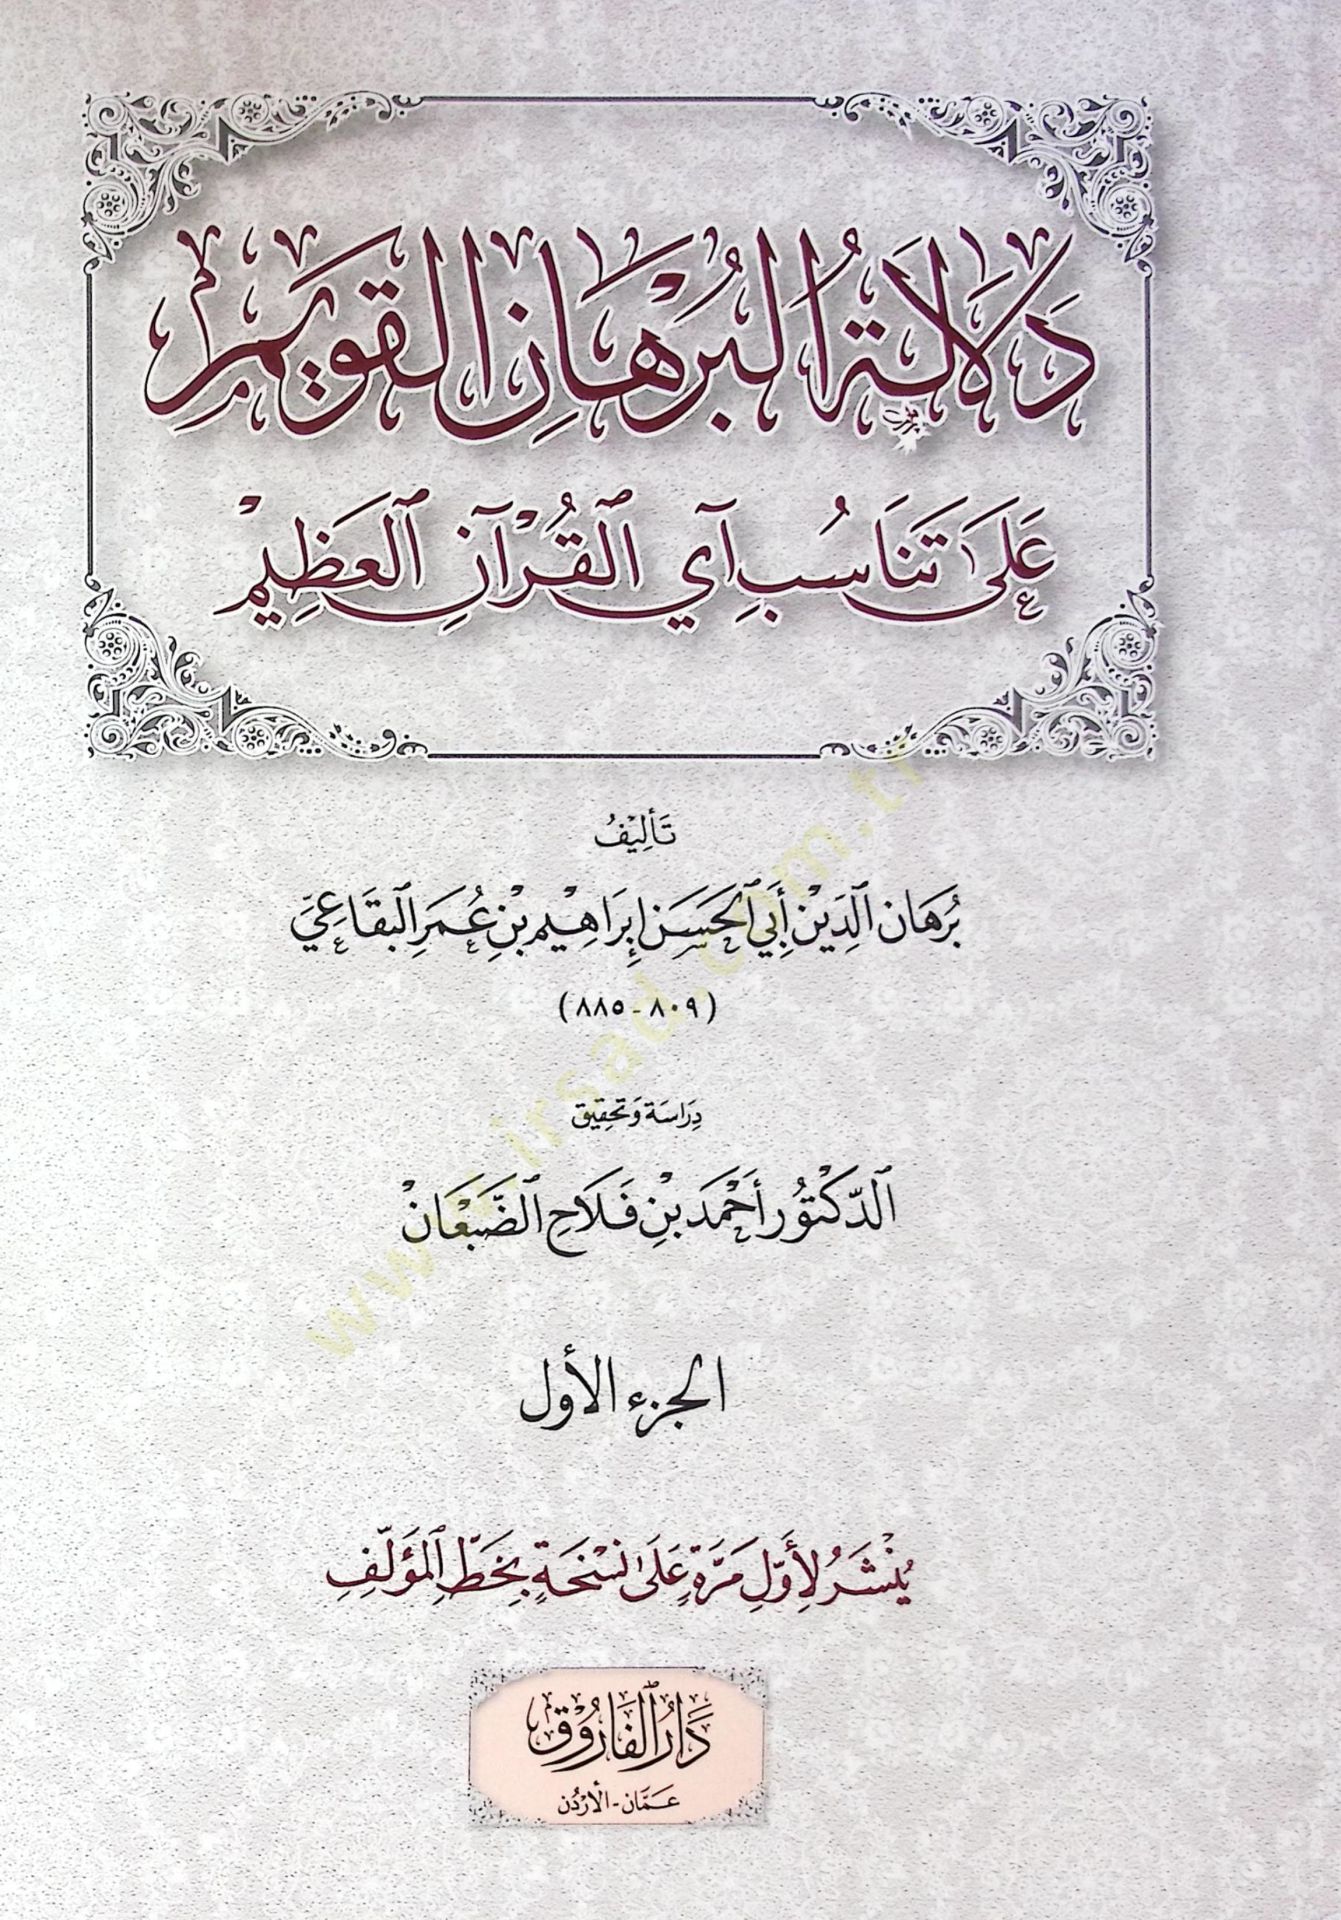 دَلَالَةُ الْبُرْهَانِ الْقَوِيمِ
عَلَى تَنَاسُبِ آيِ الْقُرْآنِ الْعَظِيمِ
تَأْلِيفُ
بُرهَان الدِّين أَبِي الحَسَن إِبرَاهِيم بْنِ عُمَر البِقَاعِيّ
(٨٠٩ - ٨٨٥)
دِرَاسَة وَتَحقِيق
الدّكْتُور أَحْمَد بْنِ فَلَاحِ الضَّبْعَانْ
الجزء الأول
يُنْشَرُ لِأَوَّلِ مَرَّةٍ عَلَى نُسْخَةٍ بِخَطِّ المُؤَلِّفِ
دَارُ الفَارُوْق
عَمَّان - الأُرْدُن
www.irsad.com.tr